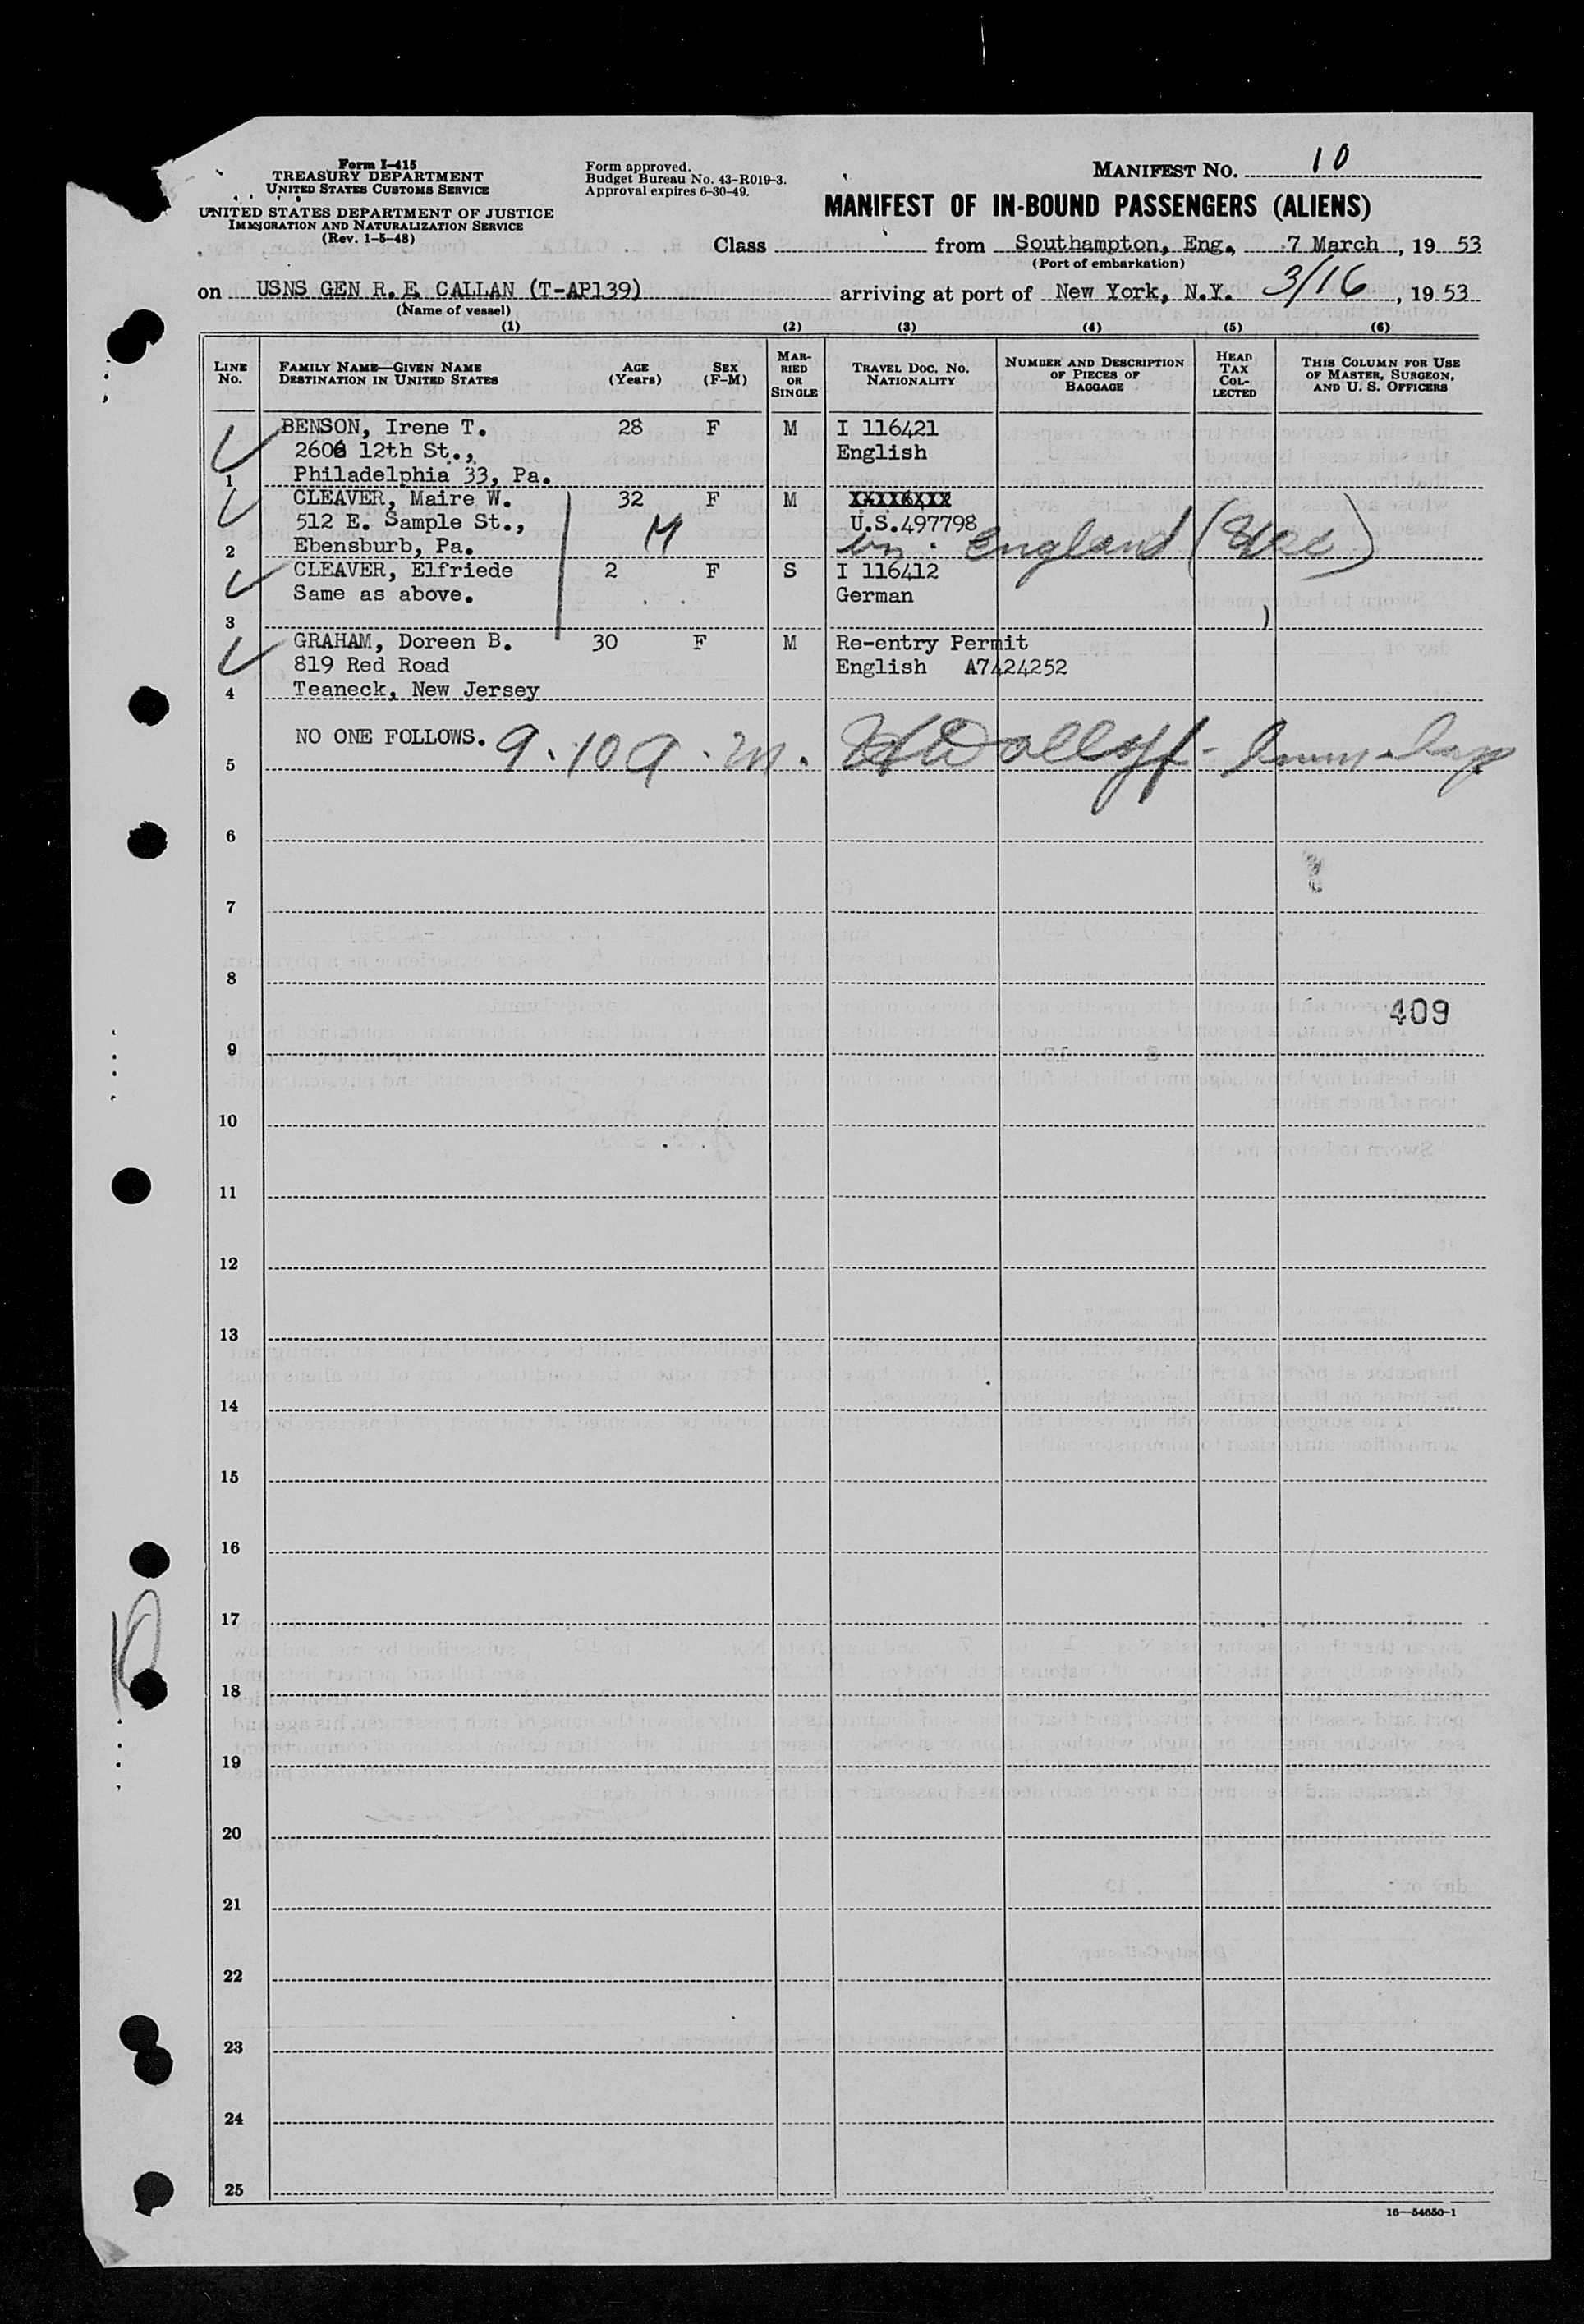 Form I-415
TREASURY DEPARTMENT
UNITED STATES CUSTOMS SERVICE
UNITED STATES DEPARTMENT OF JUSTICE
IMMIGRATION AND NATURALIZATION SERVICE
(Rev. 1-5-48)
Form approved.
Budget Bureau No. 43-R019-3.
Approval expires 6-30-49.
MANIFEST NO. 10
MANIFEST OF IN-BOUND PASSENGERS (ALIENS)
Class from Southampton, Eng., 7 March, 19 53
(Port of embarkation)
on USNS GEN R. E. CALLAN (T-AP139) arriving at port of New York, N.Y. 3/16, 19 53
(Name of vessel)
(1) (2) (3) (4) (5) (6)
LINE No. FAMILY NAME—GIVEN NAME DESTINATION IN UNITED STATES AGE (Years) SEX (F-M) MARRIED OR SINGLE TRAVEL DOC. NO. NATIONALITY NUMBER AND DESCRIPTION OF PIECES OF BAGGAGE HEAD TAX COLLECTED THIS COLUMN FOR USE OF MASTER, SURGEON, AND U. S. OFFICERS
BENSON, Irene T. 28 F M I 116421
2606 12th St., English
1 Philadelphia 33, Pa.
CLEAVER, Maire W. 32 F M
512 E. Sample St., M U.S.497798
2 Ebensburb, Pa. England
CLEAVER, Elfriede 2 F S I 116412
Same as above. German
3
GRAHAM, Doreen B. 30 F M Re-entry Permit
819 Red Road English A7424252
4 Teaneck, New Jersey
NO ONE FOLLOWS. 9.10 a.m.
5
6
7
8
409
9
10
11
12
13
14
15
16
17
10
18
19
20
21
22
23
24
25
16—54650-1